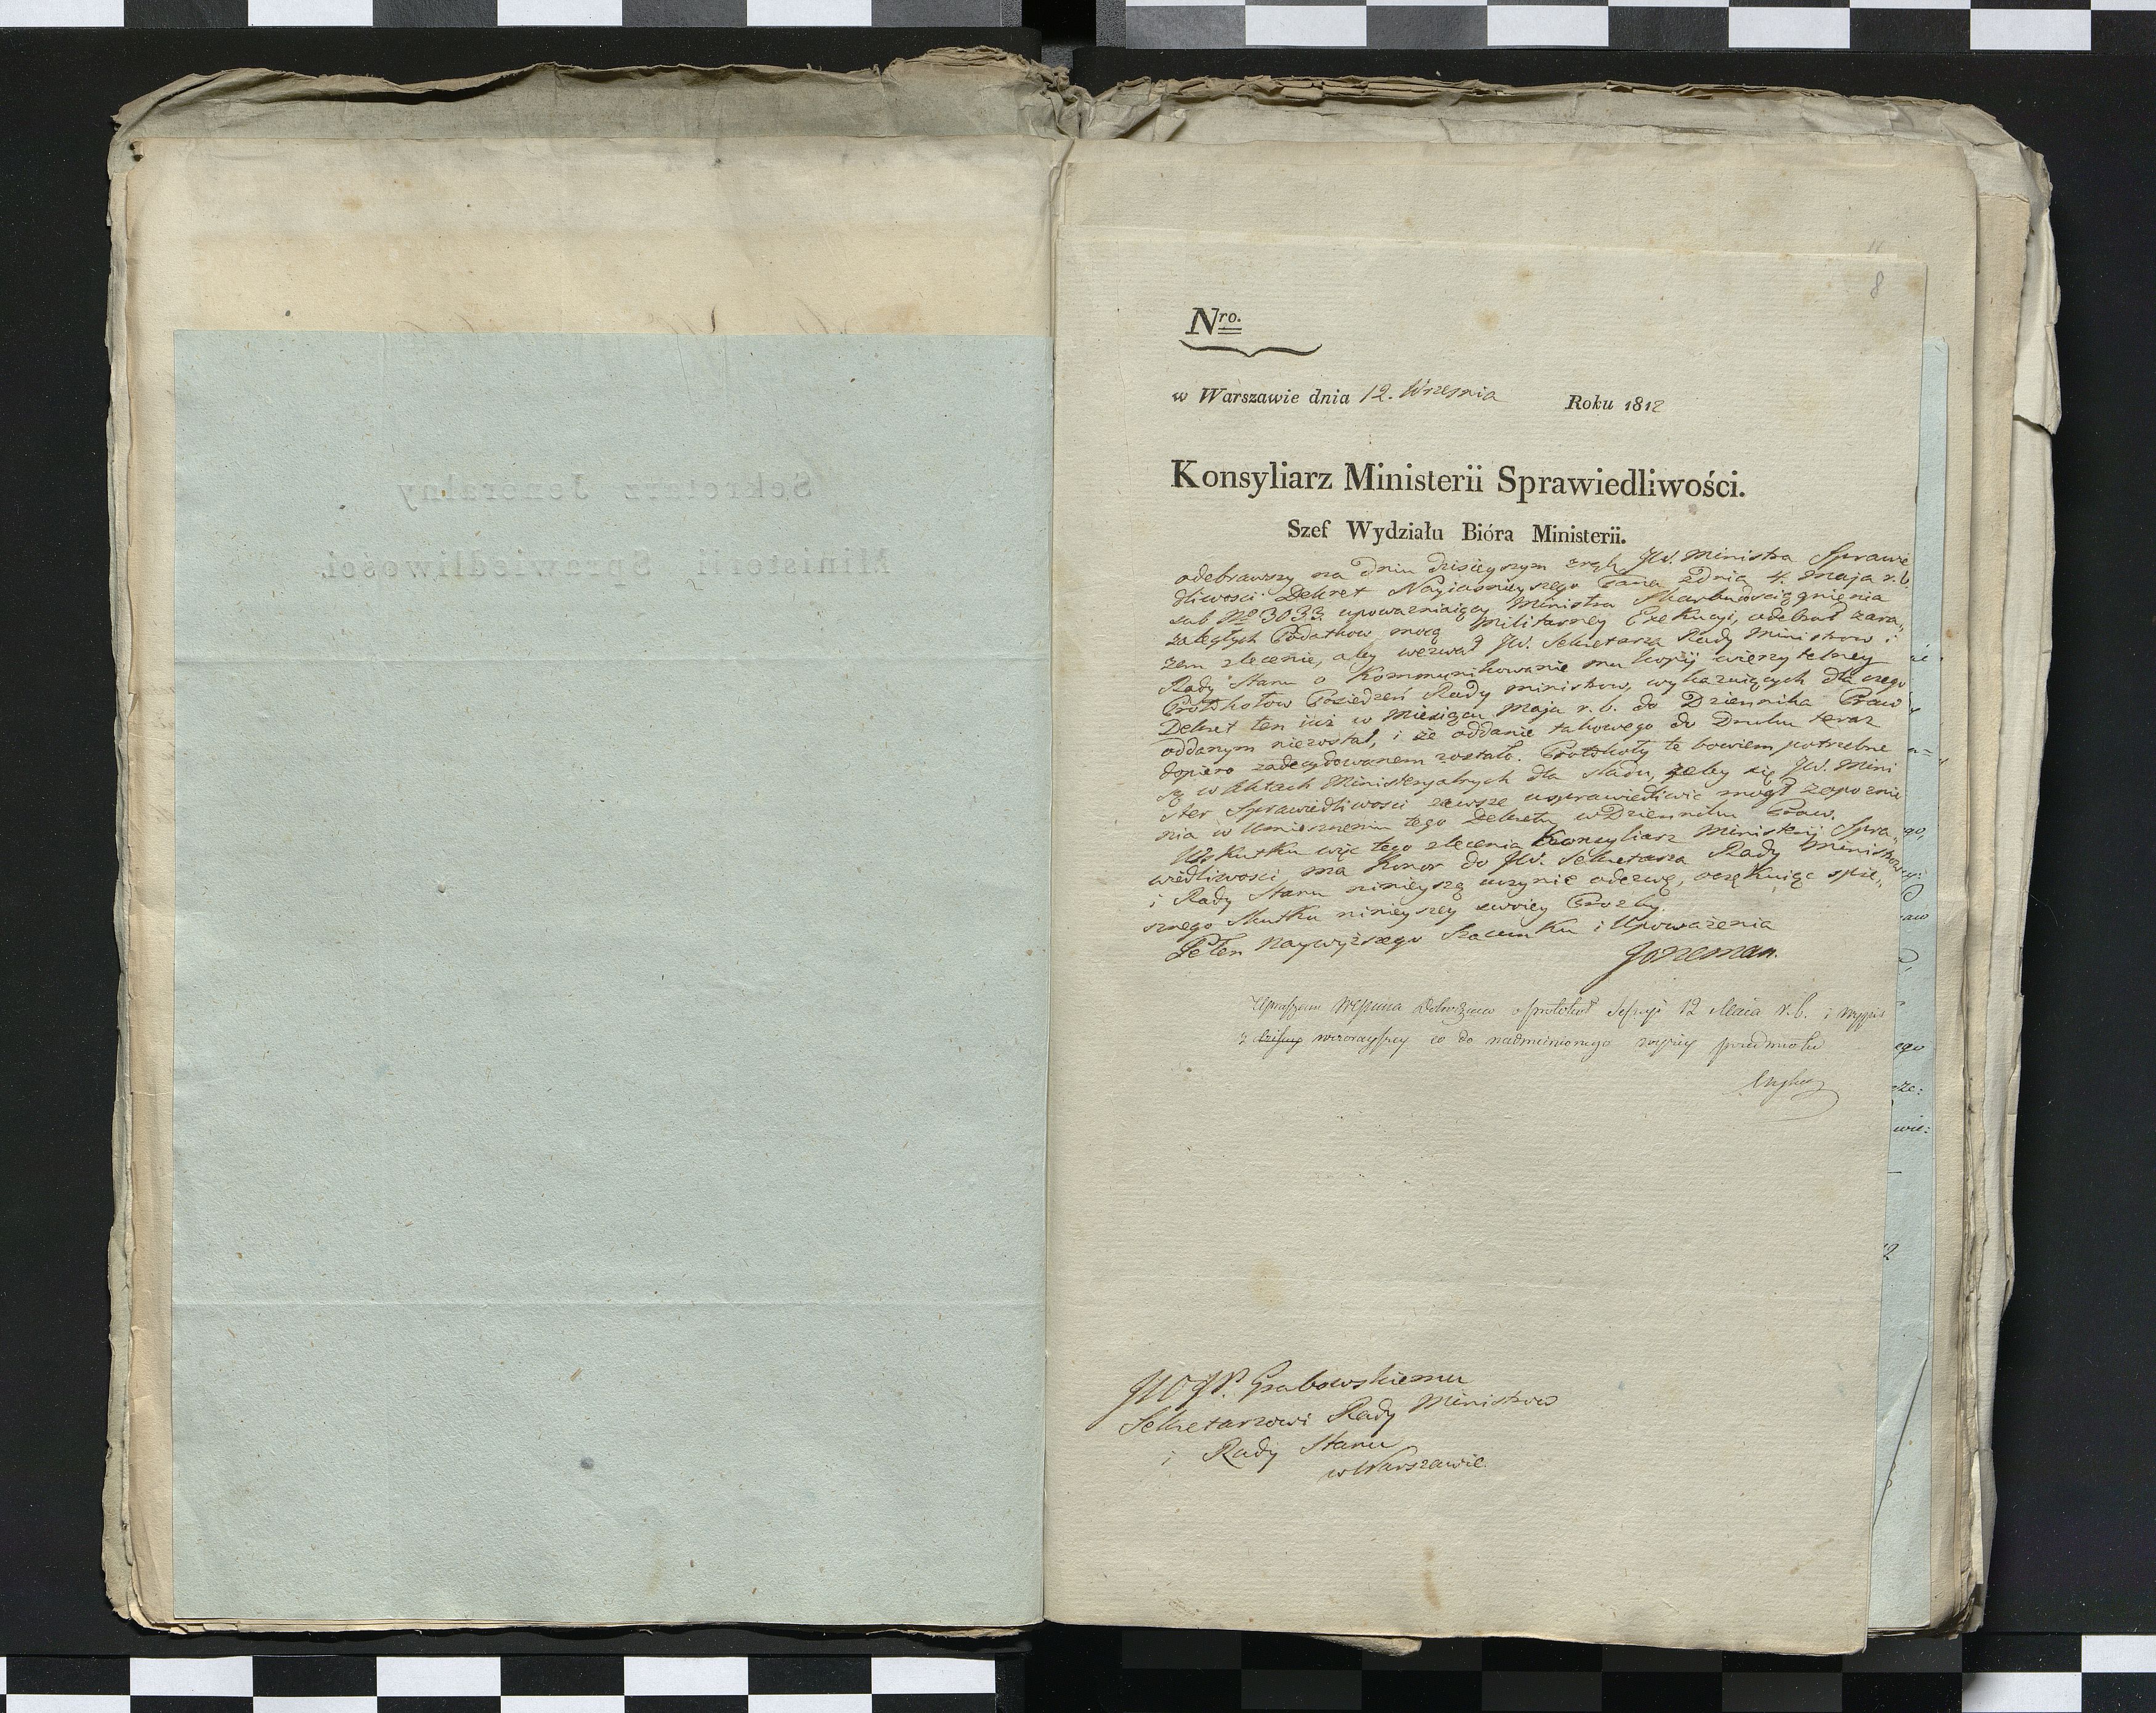 Sekretarz Jeneralny
Ministerii Sprawiedliwości.
8
Nro.
w Warszawie dnia 12. Września Roku 1812
Konsyliarz Ministerii Sprawiedliwości.
Szef Wydziału Bióra Ministerii.
odebrawszy na dniu dzisieyszym z rąk JW. Ministra Sprawie
dliwosci Dekret Nayiasnieyszego Pana z dnia 4. Maja r. b.
sub No 3033. upoważniaiący Ministra Skarbu do sciągnienia
zaległych Podatkow mocą Militarney Exekucyi, odebrał zara„
zem zlecenie, aby wezwał JW. Sekretarza Rady Ministrow i
Rady Stanu o Kommunikowanie mu kopij wierzytelney
Protokołow Posiedzeń Rady Ministrow, wykazuiących dla czego
Dekret ten iuż w Miesiącu Maju r. b. do Dziennika Praw
oddanym niezostał, i że oddanie takowego do Druku teraz
dopiero zadecydowanem zostało. Protokoły te bowiem potrzebne
są w Aktach Ministeryalnych dla sladu, żeby się JW. Mini
ster Sprawiedliwosci zawsze usprawiedliwic mogł z opoznie
nia w Umieszczeniu tego Dekretu w Dzienniku Praw.
W skutku więc tego zlecenia Konsyliarz Ministerij Spra„
wiedliwosci ma honor do JW. Sekretarza Rady Ministrow
i Rady Stanu ninieyszą uczynic odezwę, oczekuiąc spie„
sznego Skutku ninieyszey swoiey Prozby.
Pełen Naywyższego Szacunku i Upoważenia
Upraszam Dobrodzieia o protokuł Sessyi 12 Maia r. b. i wypis
z wczorayszey co do nadmienionego wyżey przedmiotu
JW JP. Grabowskiemu
Sekretarzowi Rady Ministrow
i Rady Stanu
w Warszawie.